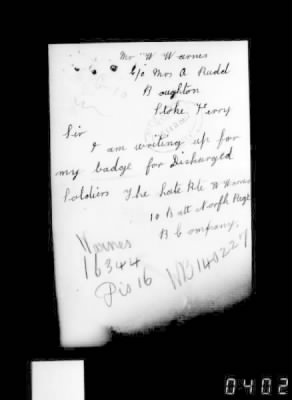 Mr W Warnes
C/o Mrs A Rudd
Boughton
Stoke Ferry
Sir
I am writing up for
my badge for Discharged
Soldiers The late Pte W Warnes
10 Batt Norfk Regt
B Company.
Warnes
16344
Dis 16
WB140227
0402